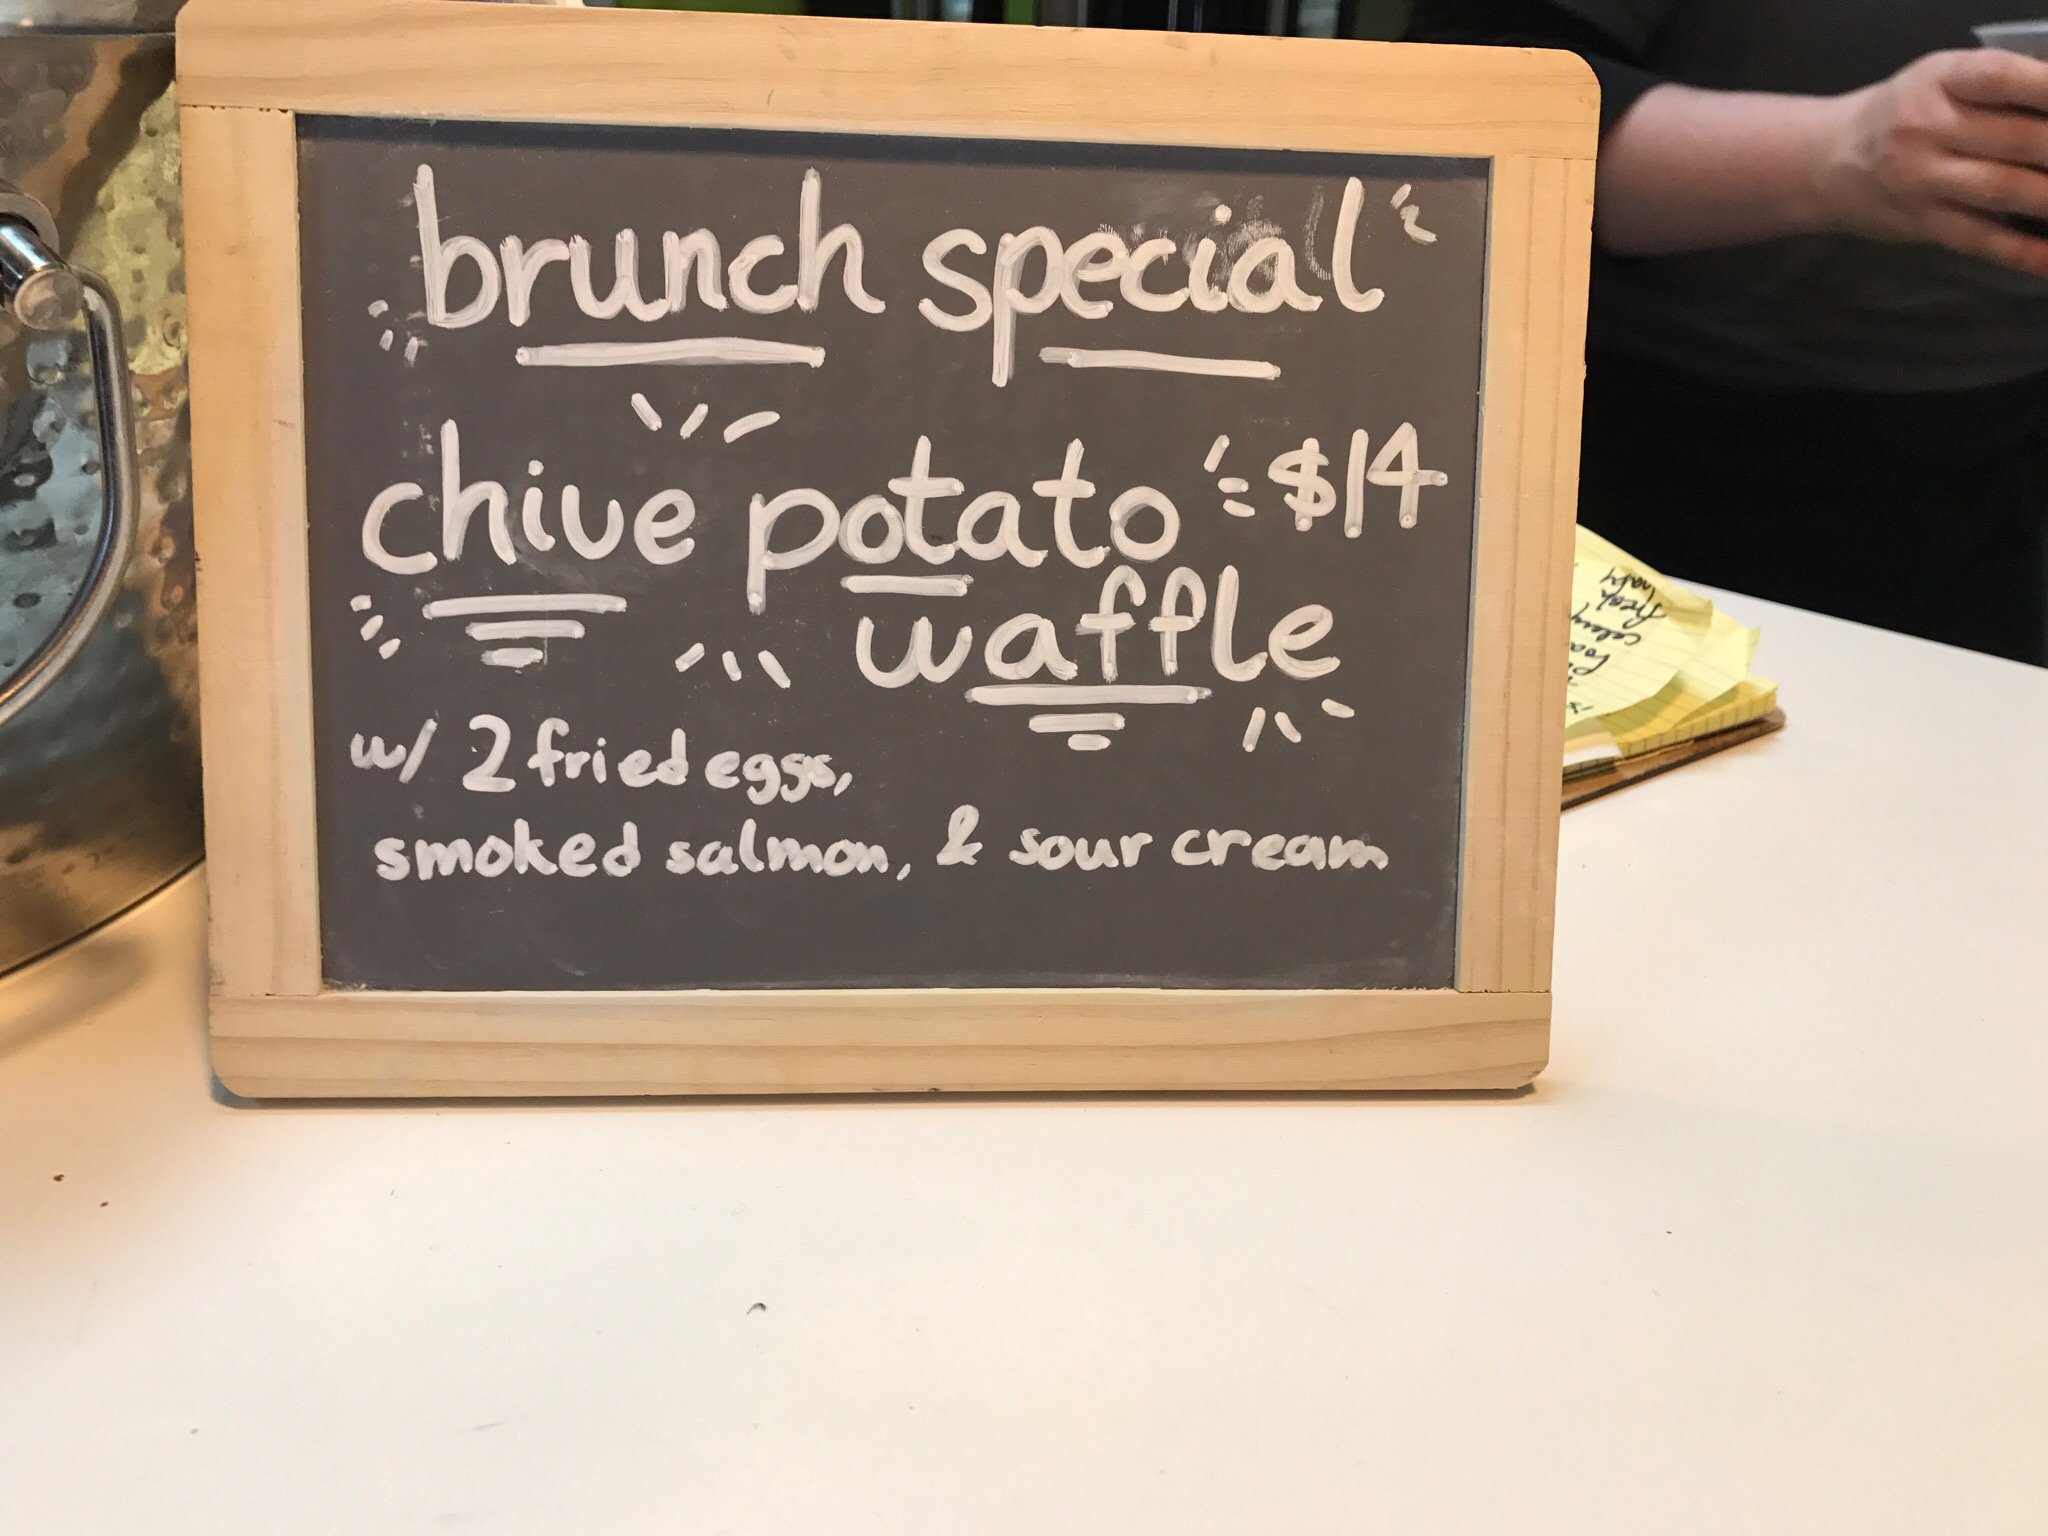 brunch special
chive potato $14
waffle
w/ 2 fried eggs,
smoked salmon, & sour cream
celery